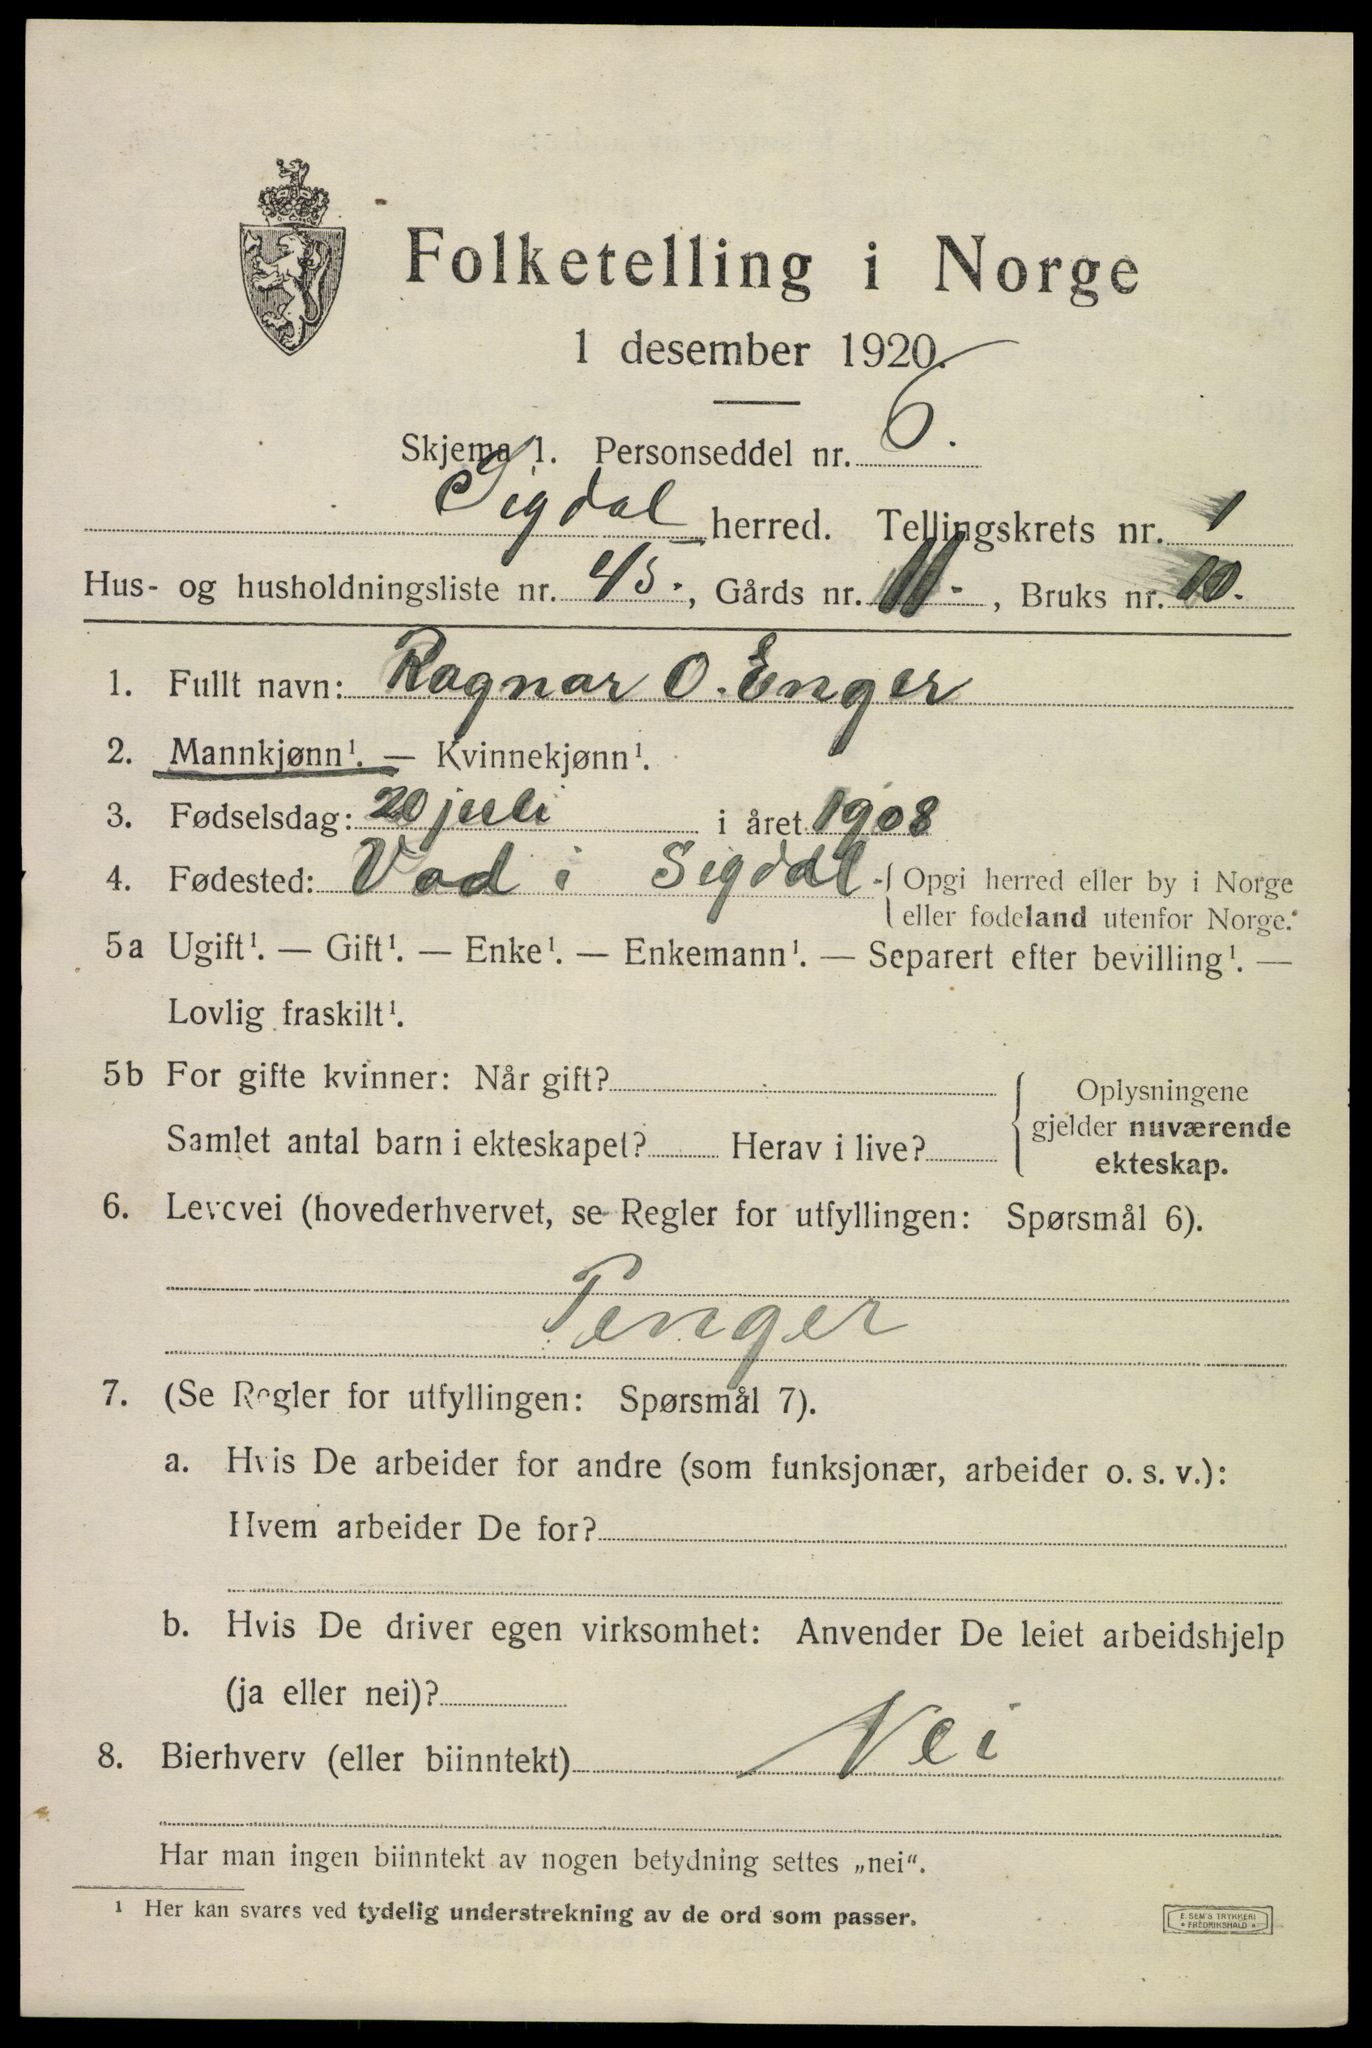 Folketelling i Norge
1 desember 1920.
Skjema 1. Personseddel nr. 6.
Sigdal herred. Tellingskrets nr. 1
Hus- og husholdningsliste nr. 45., Gårds nr. 11-, Bruks nr. 10.
1. Fullt navn: Ragnar O. Enger
2. Mannkjønn¹. — Kvinnekjønn¹.
3. Fødselsdag: 20 juli i året 1908
4. Fødested: Vad i Sigdal. { Opgi herred eller by i Norge
eller fødeland utenfor Norge.
5a Ugift¹. — Gift¹. — Enke¹. — Enkemann¹. — Separert efter bevilling¹. —
Lovlig fraskilt¹.
5b For gifte kvinner: Når gift?
Samlet antal barn i ekteskapet? Herav i live?
{ Oplysningene
gjelder nuværende
ekteskap.
6. Levevei (hovederhvervet, se Regler for utfyllingen: Spørsmål 6).
Penger
7. (Se Regler for utfyllingen: Spørsmål 7).
a. Hvis De arbeider for andre (som funksjonær, arbeider o. s. v.):
Hvem arbeider De for?
b. Hvis De driver egen virksomhet: Anvender De leiet arbeidshjelp
(ja eller nei)?
8. Bierhverv (eller biinntekt) Nei
Har man ingen biinntekt av nogen betydning settes „nei“.
¹ Her kan svares ved tydelig understrekning av de ord som passer.
E. SEM'S TRYKKERI
* FREDRIKSHALD *